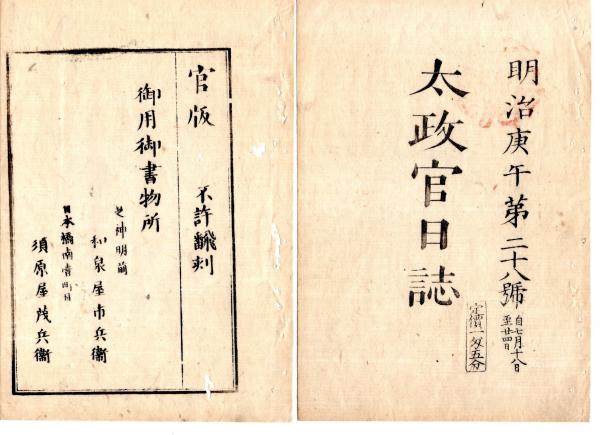 明治庚午第二十八號
自七月十八日
至廿四日
太政官日誌
定價一匁五分
官版
不許翻刻
御用御書物所
芝神明前
和泉屋市兵衞
日本橋南壹町目
須原屋茂兵衞